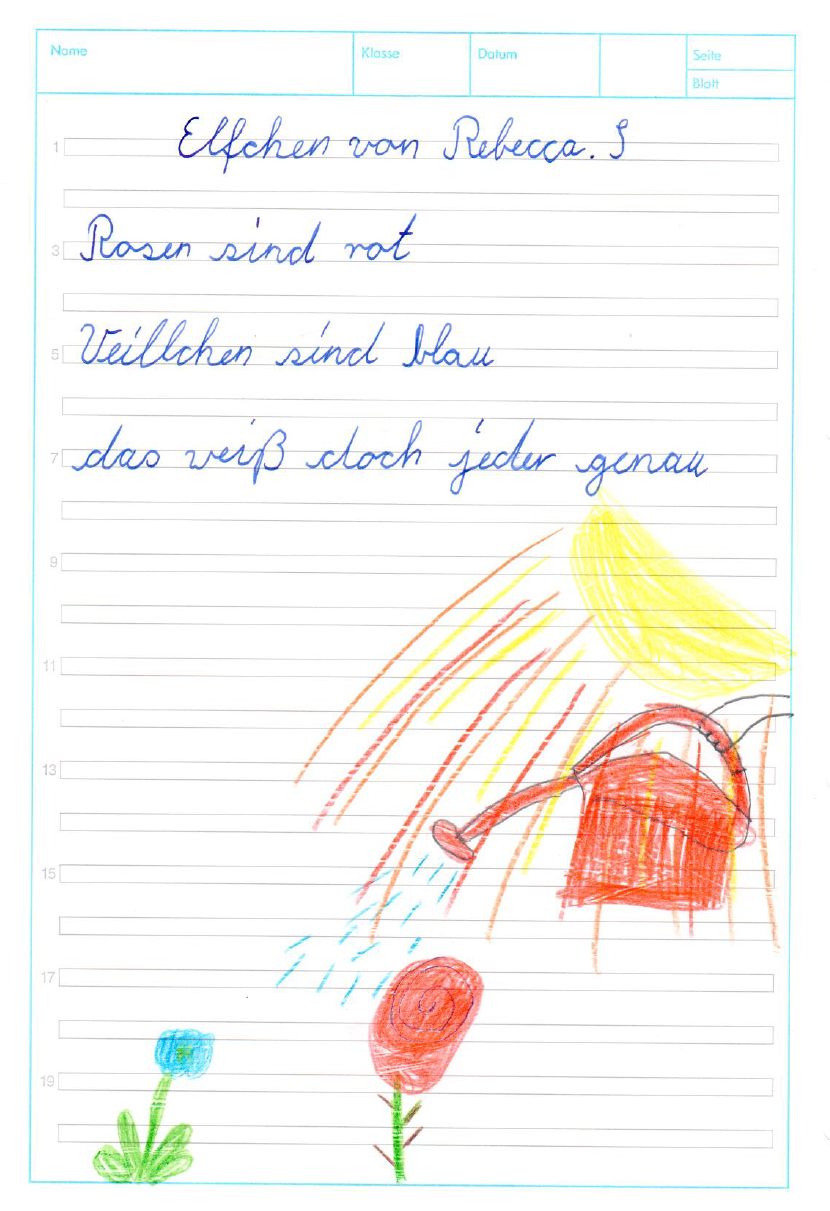 Name Klasse Datum Seite
Blatt
1 Elfchen von Rebecca. S
3 Rosen sind rot
5 Veillchen sind blau
7 das weiß doch jeder genau
9
11
13
15
17
19